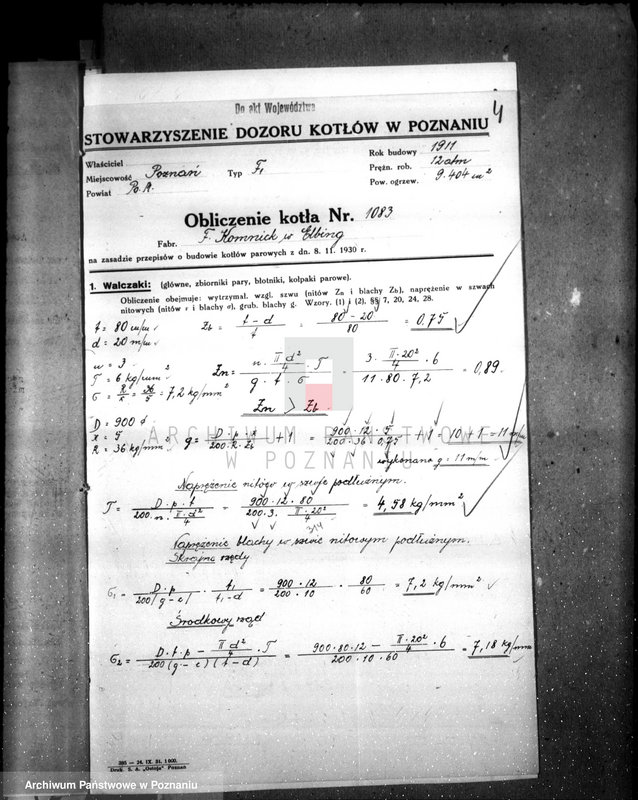 Do akt Województwa
4
STOWARZYSZENIE DOZORU KOTŁÓW W POZNANIU
Właściciel
Miejscowość Poznań Typ F1
Powiat
Rok budowy 1911
Prężn. rob. 12 atm
Pow. ogrzew. 9.404 m²
Obliczenie kotła Nr. 1083
Fabr. F. Komnick w Elbing
na zasadzie przepisów o budowie kotłów parowych z dn. 8. 11. 1930 r.
1. Walczaki: (główne, zbiorniki pary, błotniki, kołpaki parowe).
Obliczenie obejmuje: wytrzymał. wzgl. szwu (nitów Zn i blachy Zb), naprężenie w szwach
nitowych (nitów τ i blachy σ), grub. blachy g. Wzory. (1) i (2). §§ 7, 20, 24, 28.
t = 80 m/m
d = 20 m/m
Zb = (t - d) / t = (80 - 20) / 80 = 0,75
n = 3
T = 6 kg/mm²
σ = R/x = 36/5 = 7,2 kg/mm²
Zn = (n · π d²/4 · T) / (g · t · σ) = (3 · π · 20²/4 · 6) / (11 · 80 · 7,2) = 0,89
Zn > Zb
D = 900 φ
x = 5
R = 36 kg/mm²
g = (D · p · x) / (200 · R · Zb) + 1 = (900 · 12 · 5) / (200 · 36 · 0,75) + 1 = 10 + 1 = 11 m/m
wykonano g = 11 m/m
Naprężenie nitów w szwie podłużnym.
T = (D · p · t) / (200 · n · π d²/4) = (900 · 12 · 80) / (200 · 3 · π · 20²/4) = 4,58 kg/mm²
314
Naprężenie blachy w szwie nitowym podłużnym.
Skrajne rzędy
σ1 = D · p / 200 (g - c) · t1 / (t1 - d) = (900 · 12) / (200 · 10) · 80/60 = 7,2 kg/mm²
Środkowy rząd
σ2 = (D · t · p - π d²/4 · T) / (200 (g - c) (t - d)) = (900 · 80 · 12 - π · 20²/4 · 6) / (200 · 10 · 60) = 7,18 kg/mm
ARCHIWUM PAŃSTWOWE
W POZNANIU
385 — 24. IX. 31. 1 000.
Druk. S. A. „Ostoja" Poznań
Archiwum Państwowe w Poznaniu